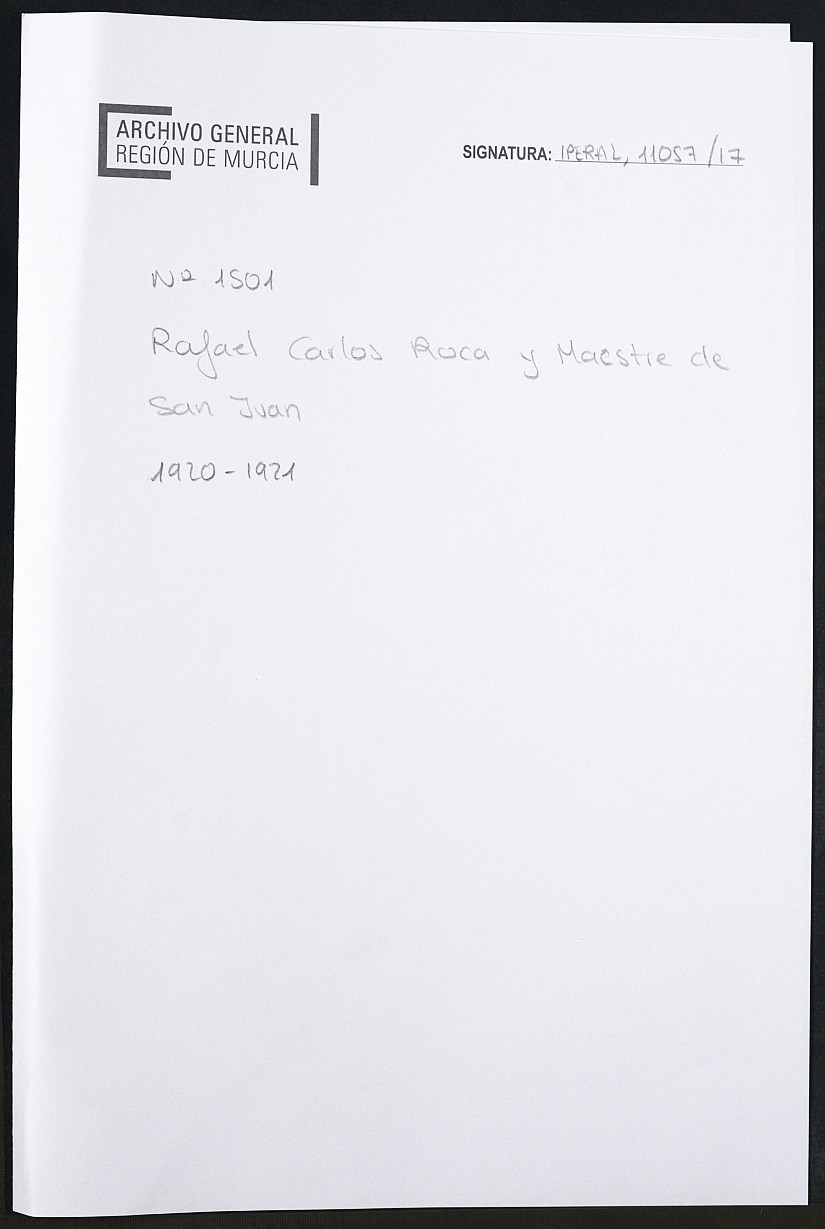 ARCHIVO GENERAL
REGIÓN DE MURCIA
SIGNATURA: IPERAL, 11057/17
Nº 1501
Rafael Carlos Roca y Maestre de
San Juan
1920-1921